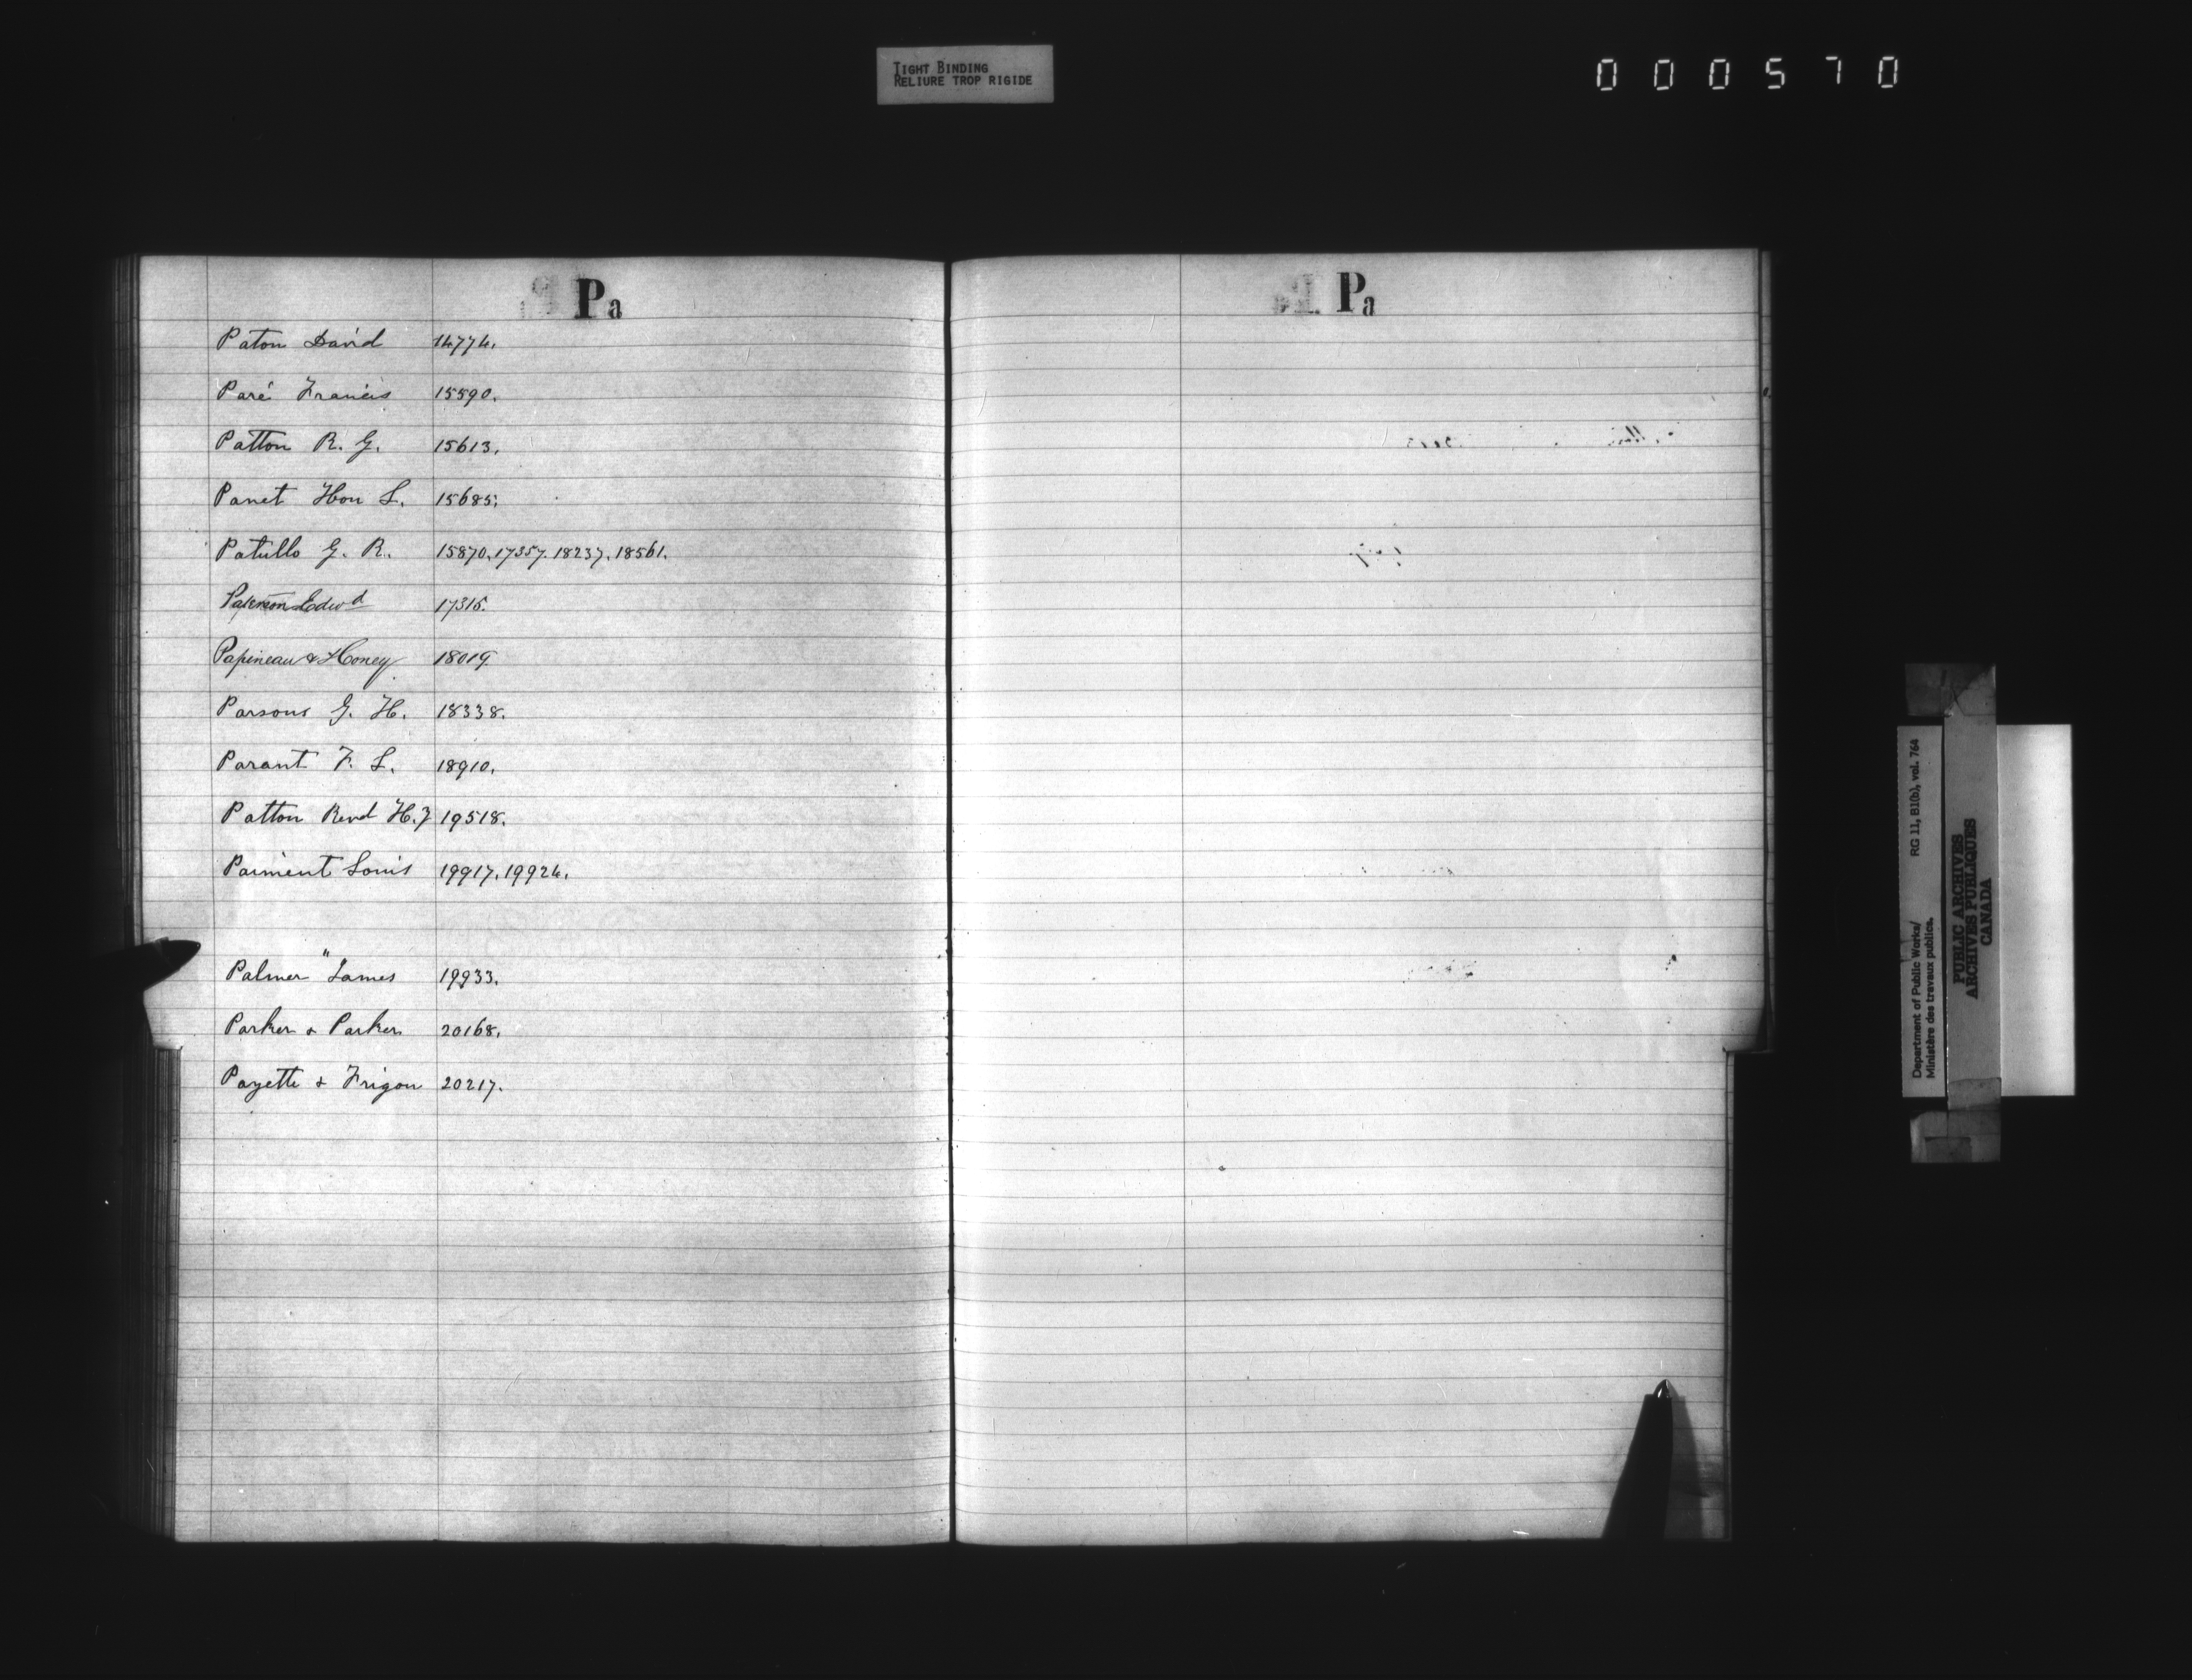 TIGHT BINDING
RELIURE TROP RIGIDE
000570
Pa
Paton David 14774.
Paré Francis 15590.
Patton R. G. 15613.
Panet Hon L. 15685.
Patullo G. R. 15870. 17357. 18237. 18561.
Paterson Edwd 17315.
Papineau & Honey 18019
Parsons G. H. 18338.
Parant F. L. 18910.
Patton Revd H. 19518.
Paiment Louis 19917. 19924.
Palmer " James 19933.
Parker & Parker 20168.
Payette & Frigon 20217.
Pa
Department of Public Works/ RG 11, B1(b), vol. 764
Ministère des travaux publics.
PUBLIC ARCHIVES
ARCHIVES PUBLIQUES
CANADA